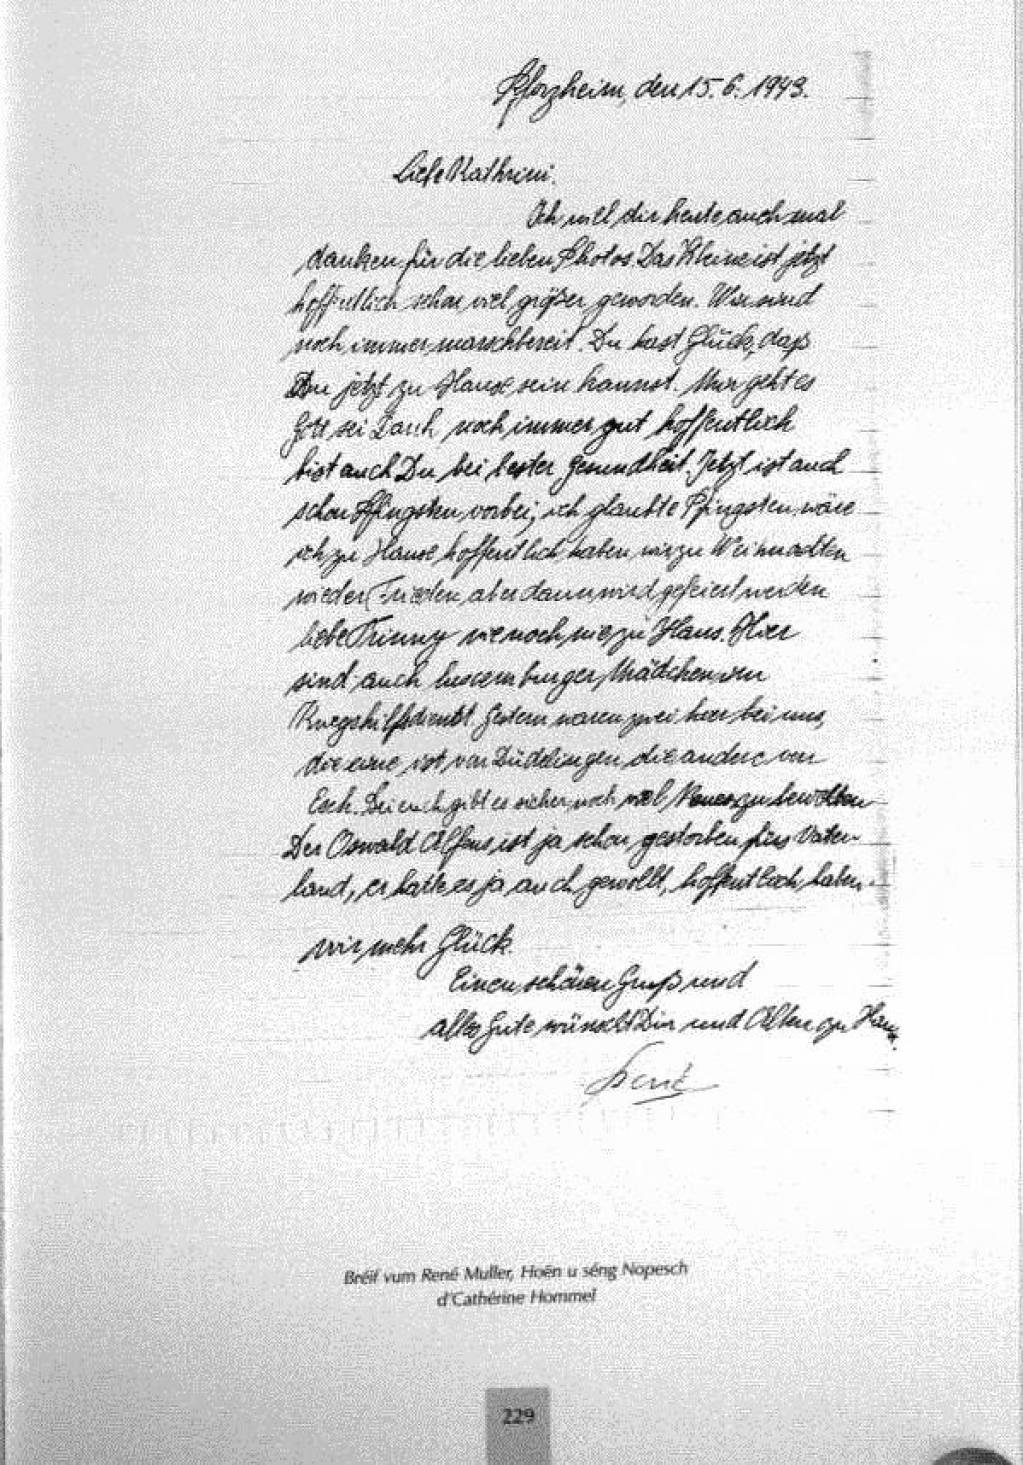 Pforzheim, den 15. 6. 1943.
Liebe Kathrini.
Ich will dir heute auch mal
danken für die lieben Photos. Das Kleine ist jetzt
hoffentlich schon viel größer geworden. Wir sind
noch immer marschbereit. Du hast Glück, daß
Du jetzt zu Hause sein kannst. Mir geht es
Gott sei Dank noch immer gut hoffentlich
bist auch Du bei bester Gesundheit. Jetzt ist auch
schon Pfingsten vorbei; ich glaubte Pfingsten wäre
ich zu Hause hoffentlich haben wir zu Weihnachten
wieder Frieden, aber dann wird gefeiert werden
liebe Trinny wie noch nie zu Haus. Hier
sind auch luxemburger Mädchen vom
Kriegshilfsdienst. Gestern waren zwei hier bei uns,
die eine ist von Düdelingen die andere von
Esch. Bei euch gibt es sicher noch viel Neues zu
Der Oswald Alfons ist ja schon gestorben fürs Vater-
land, er hatte es ja auch gewollt, hoffentlich haben
wir mehr Glück.
Einen schönen Gruß und
alles Gute wünscht Dir und Allen zu Haus.
René
Bréif vum René Muller, Hoën u séng Nopesch
d'Cathérine Hommel
229